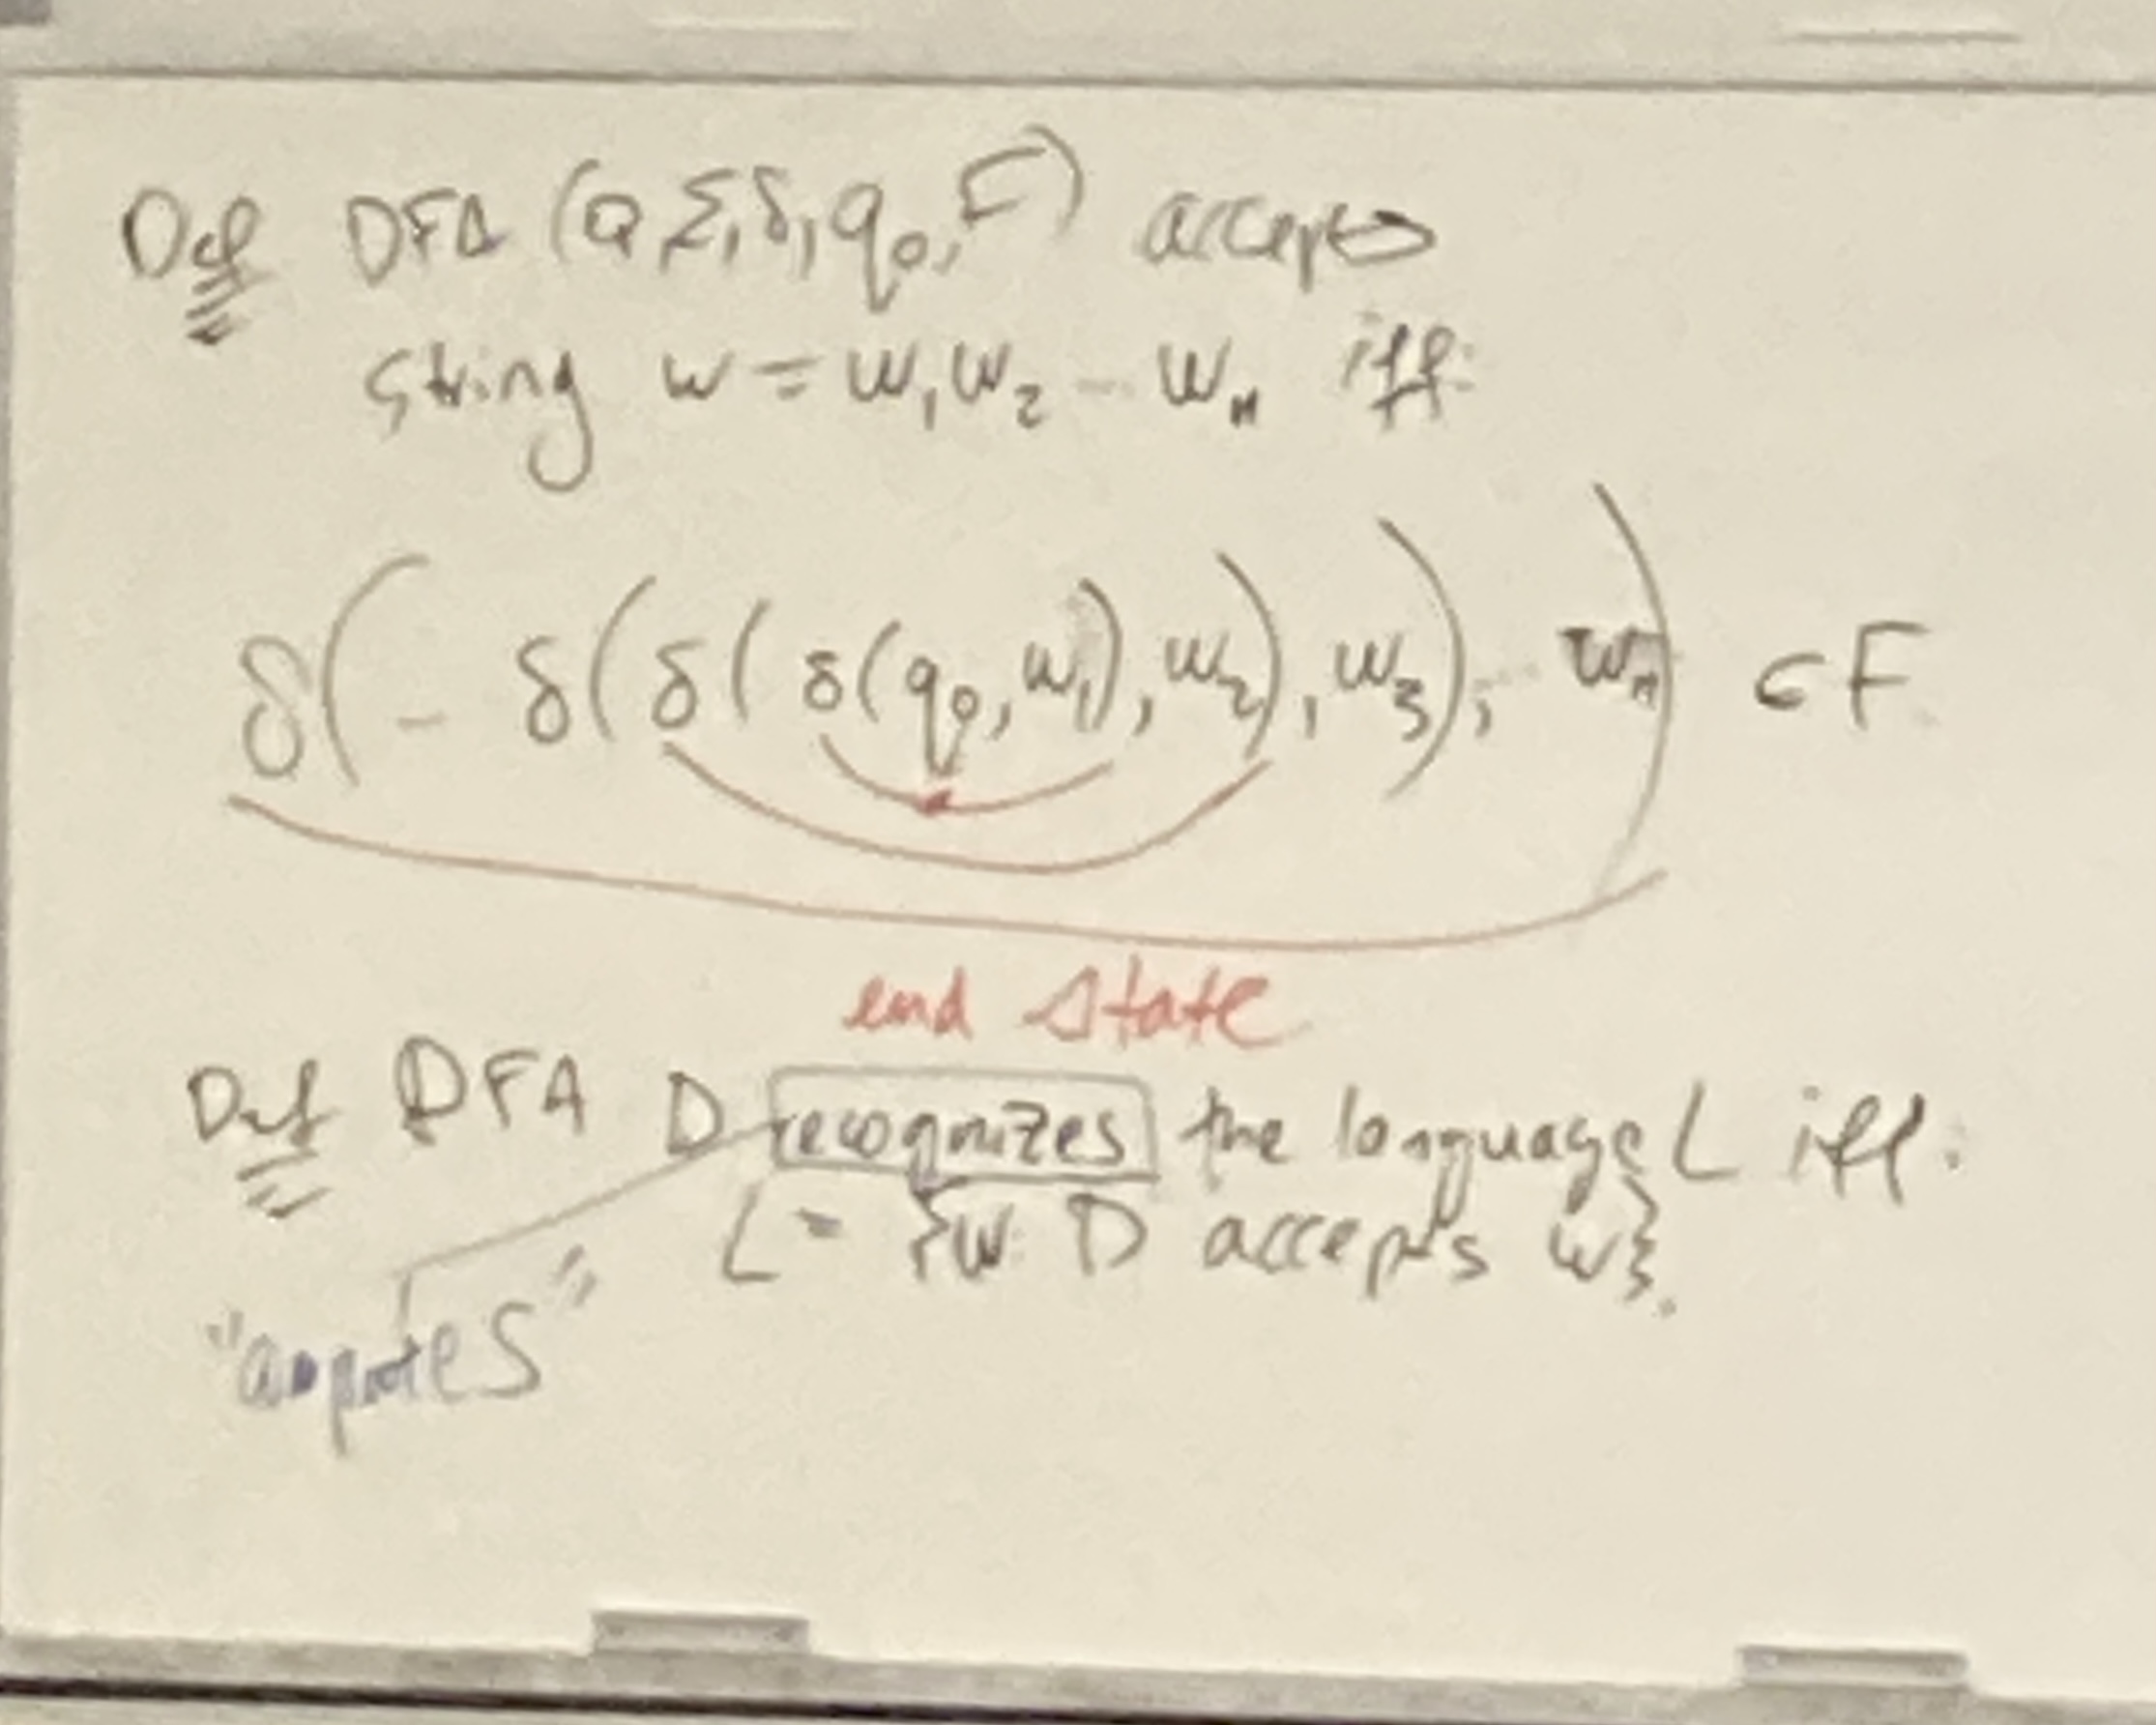 Def DFA (Q, Σ, δ, q₀, F) accepts
string w = w₁w₂ -- wₙ iff:
δ( - δ( δ( δ(q₀, w₁), w₂), w₃), -- wₙ) ∈ F
end state
Def DFA D recognizes the language L iff:
L = {w: D accepts w}.